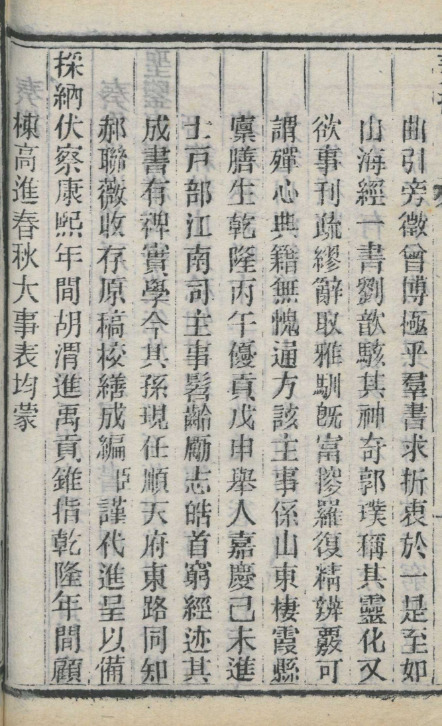 曲引旁徵曾博極乎羣書求折衷於一是至如
山海經一書劉歆駭其神奇郭璞稱其靈化又
欲事刊疏繆辭取雅馴旣富摎羅復精辨覈可
謂殫心典籍無愧通方該主事係山東棲霞縣
廩膳生乾隆丙午優貢戊申舉人嘉慶己未進
士戸部江南司主事髫齡勵志皓首窮經迹其
成書有裨實學今其孫現任順天府東路同知
郝聯薇收存原稿校繕成編臣謹代進呈以備
採納伏察康熙年間胡渭進禹貢錐指乾隆年間顧
棟高進春秋大事表均蒙